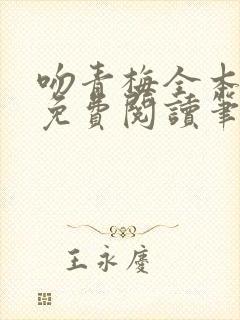 吻青梅全本
免費閱讀筆
王永慶